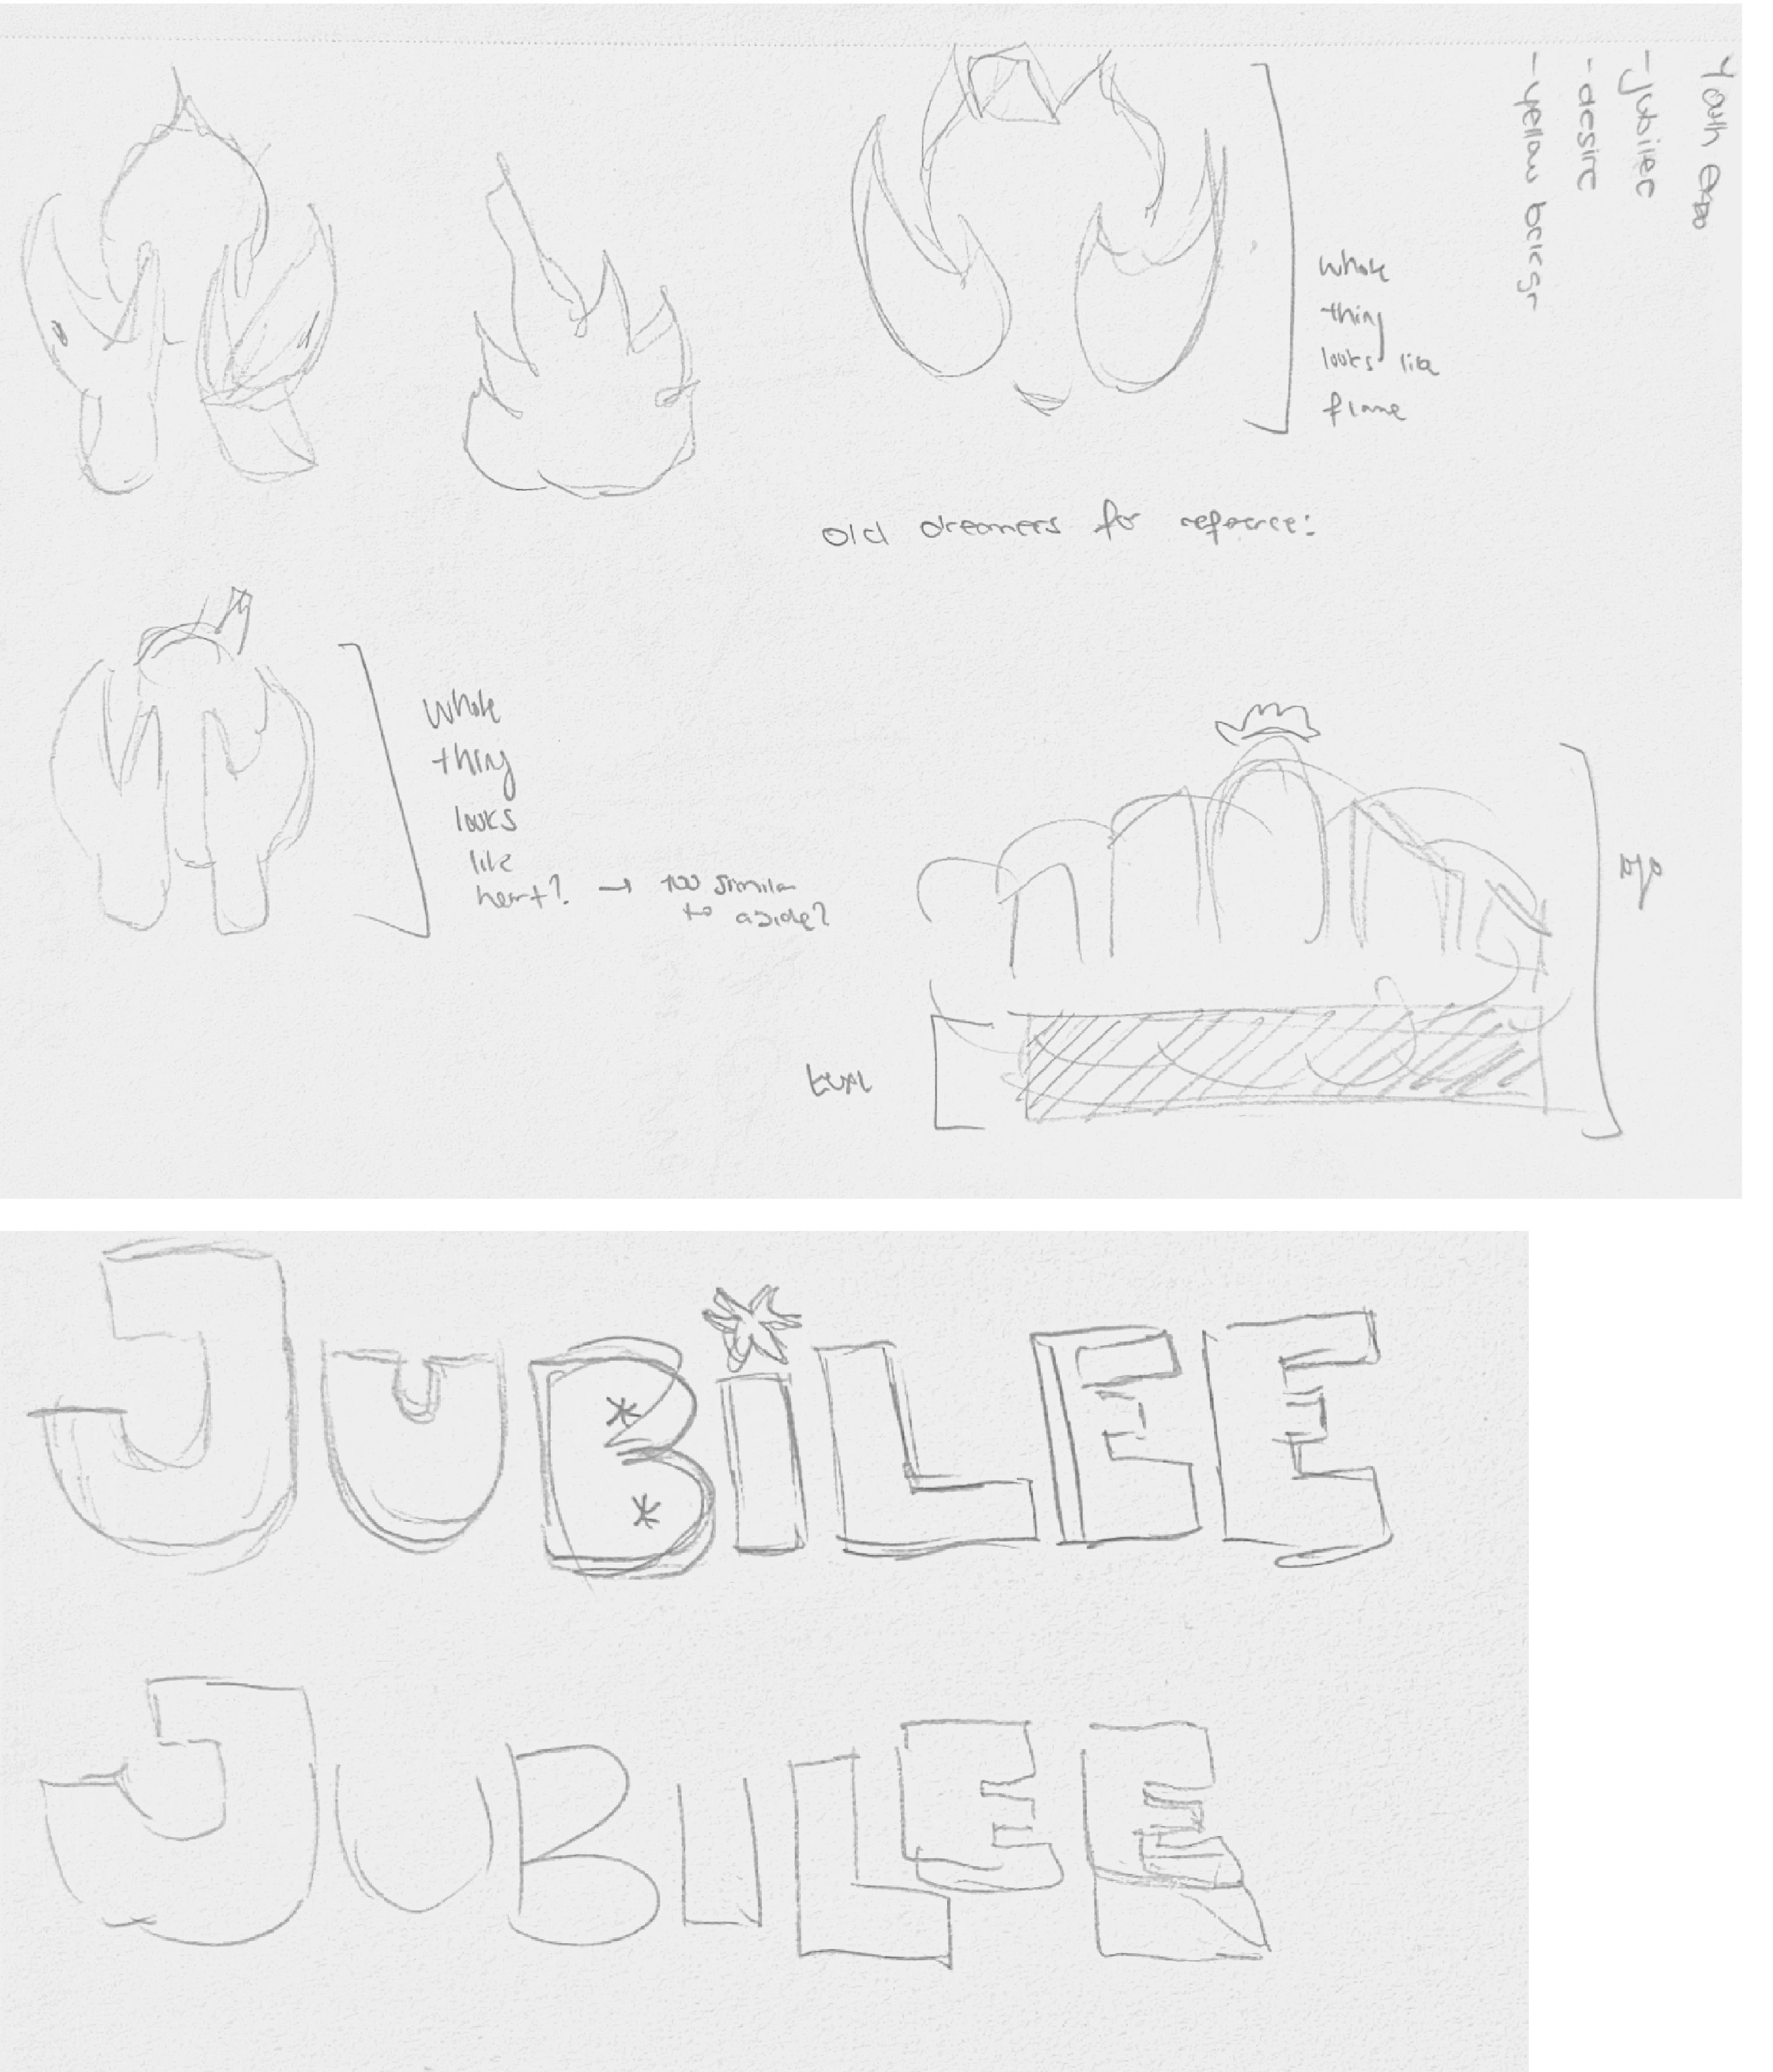 Youth expo
- Jubilee
- desire
- yellow
whole
thing
looks like
flame
old dreamers for
whole
thing
looks
like
heart? → too similar
to aside?
JUBiLEE
JUBILEE